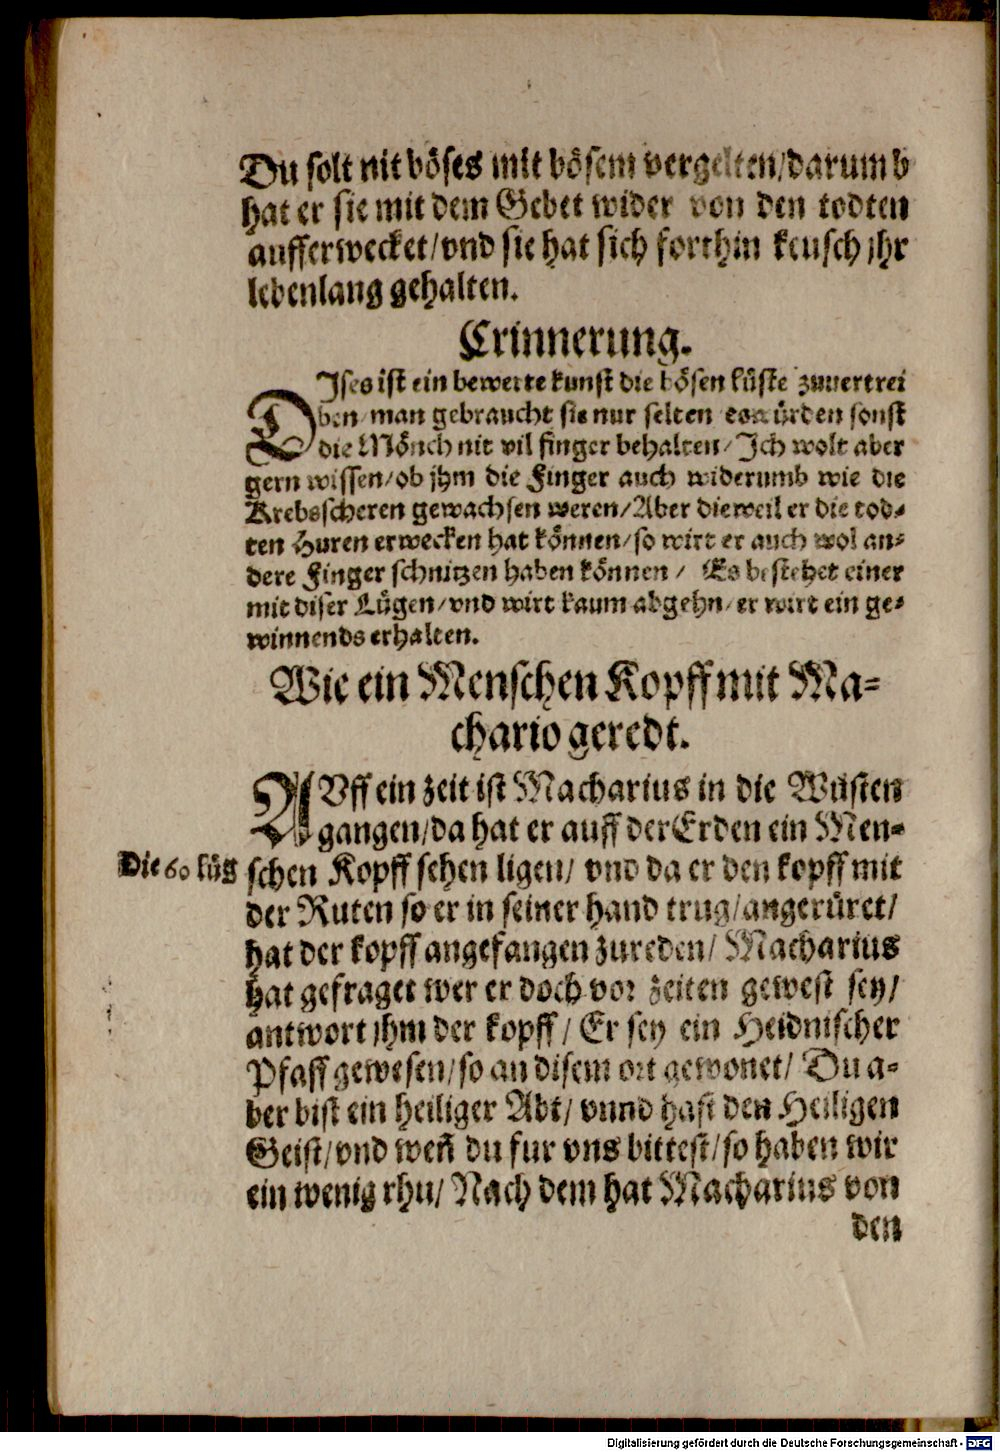 Du solt nit böses mit bösem vergelten/darumb
hat er sie mit dem Gebet wider von den todten
aufferwecket/vnd sie hat sich forthin keusch jhr
lebenlang gehalten.
Erinnerung.
DIses ist ein bewerte kunst die bösen lüste zuuertrei
ben/man gebraucht sie nur selten es würden sonst
die Mönch nit vil finger behalten/Ich wolt aber
gern wissen/ob jhm die Finger auch widerumb wie die
Krebsscheren gewachsen weren/Aber dieweil er die tod⸗
ten Huren erwecken hat können/so wirt er auch wol an⸗
dere Finger schnitzen haben können/ Es bestehet einer
mit diser Lügen/vnd wirt kaum abgehn/er wirt ein ge⸗
winnends erhalten.
Wie ein Menschen Kopff mit Ma⸗
chario geredt.
AVff ein zeit ist Macharius in die Wüsten
gangen/da hat er auff der Erden ein Men⸗
Die 60 lüg
schen Kopff sehen ligen/ vnd da er den kopff mit
der Ruten so er in seiner hand trug/angerüret/
hat der kopff angefangen zureden/ Macharius
hat gefraget wer er doch vor zeiten gewest sey/
antwort jhm der kopff/ Er sey ein Heidnischer
Pfaff gewesen/so an disem ort gewonet/ Du a⸗
ber bist ein heiliger Abt/ vnnd hast den Heiligen
Geist/vnd weñ du fur vns bittest/so haben wir
ein wenig rhu/ Nach dem hat Macharius von
den
Digitalisierung gefördert durch die Deutsche Forschungsgemeinschaft - DFG